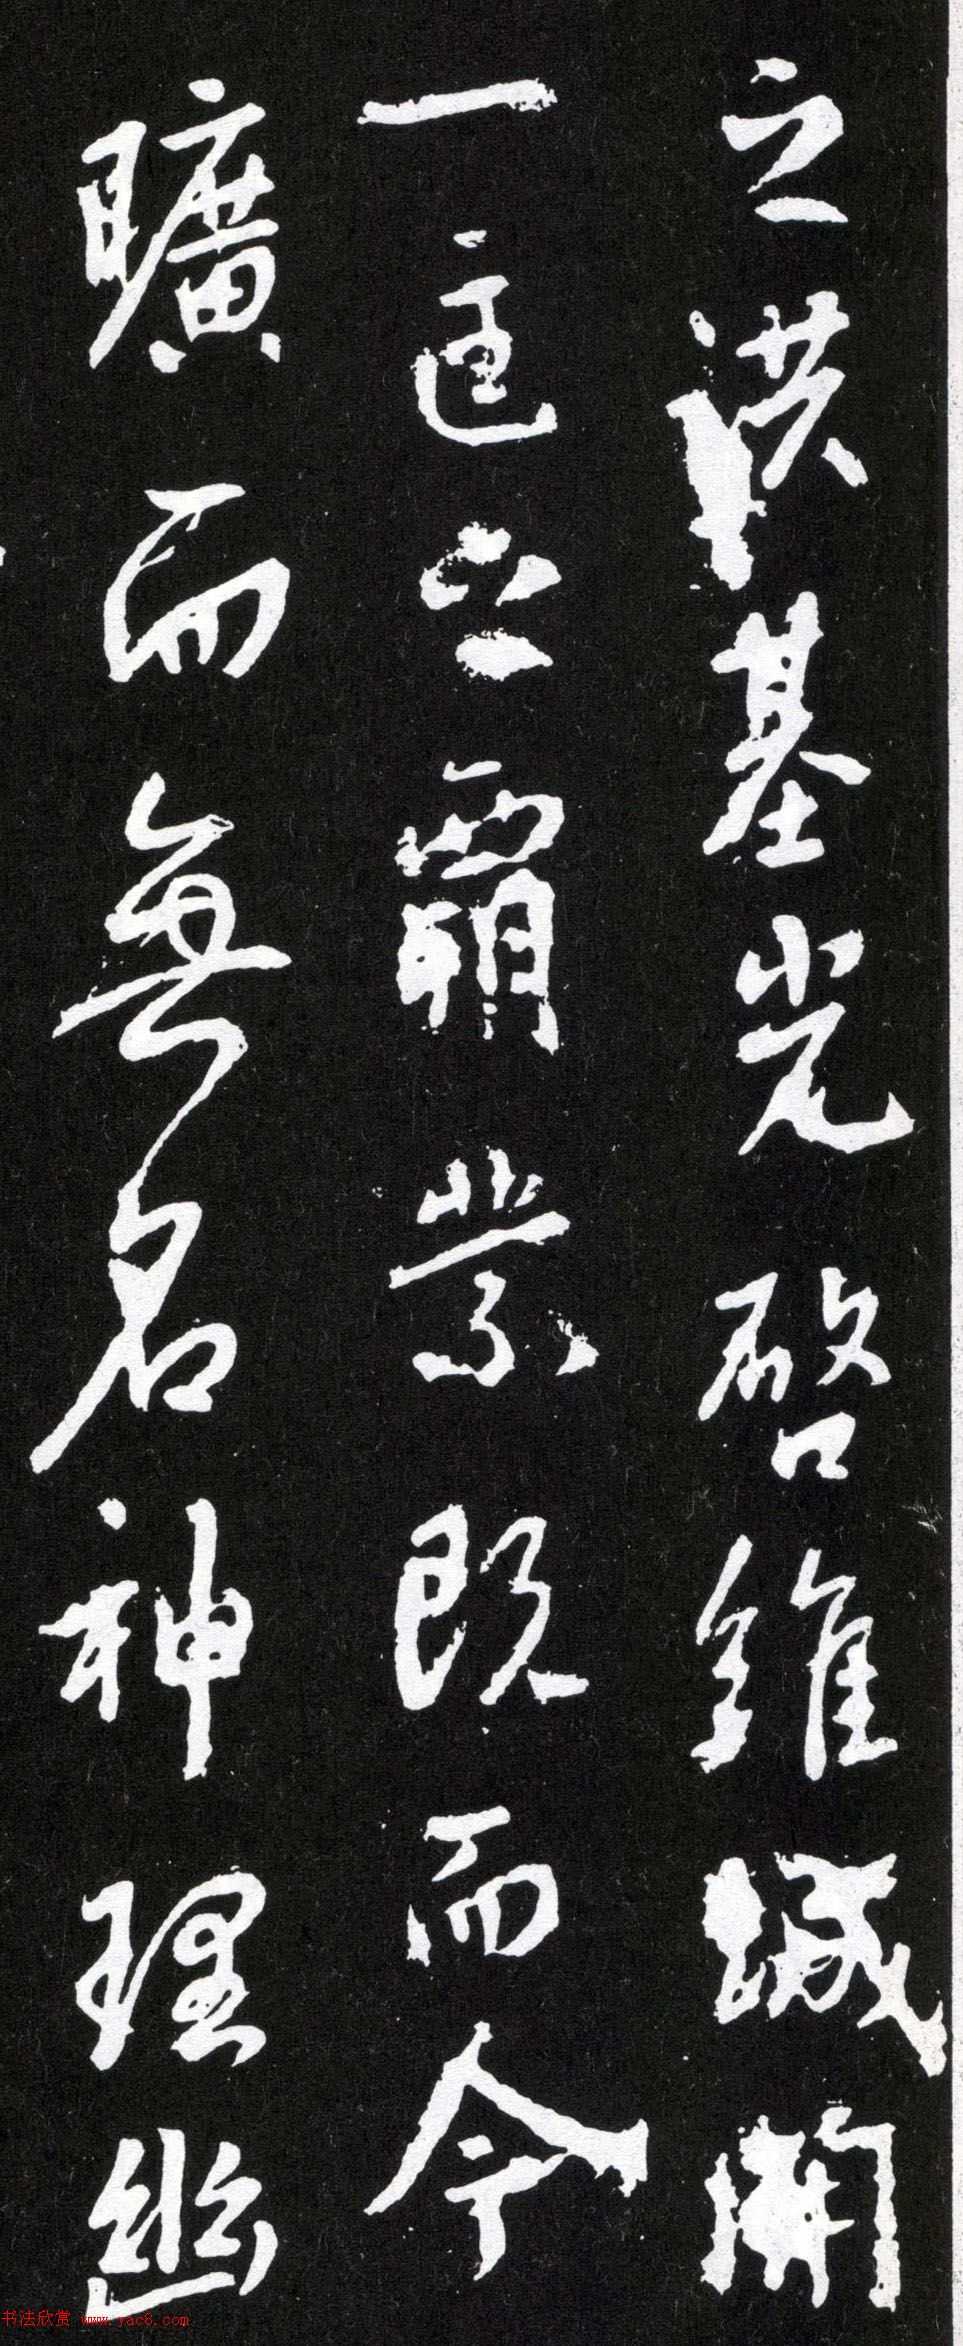 之洪基光啓維城開
一匡之霸業既而今
曠而無名神理幽
书法欣赏 www.yac8.com